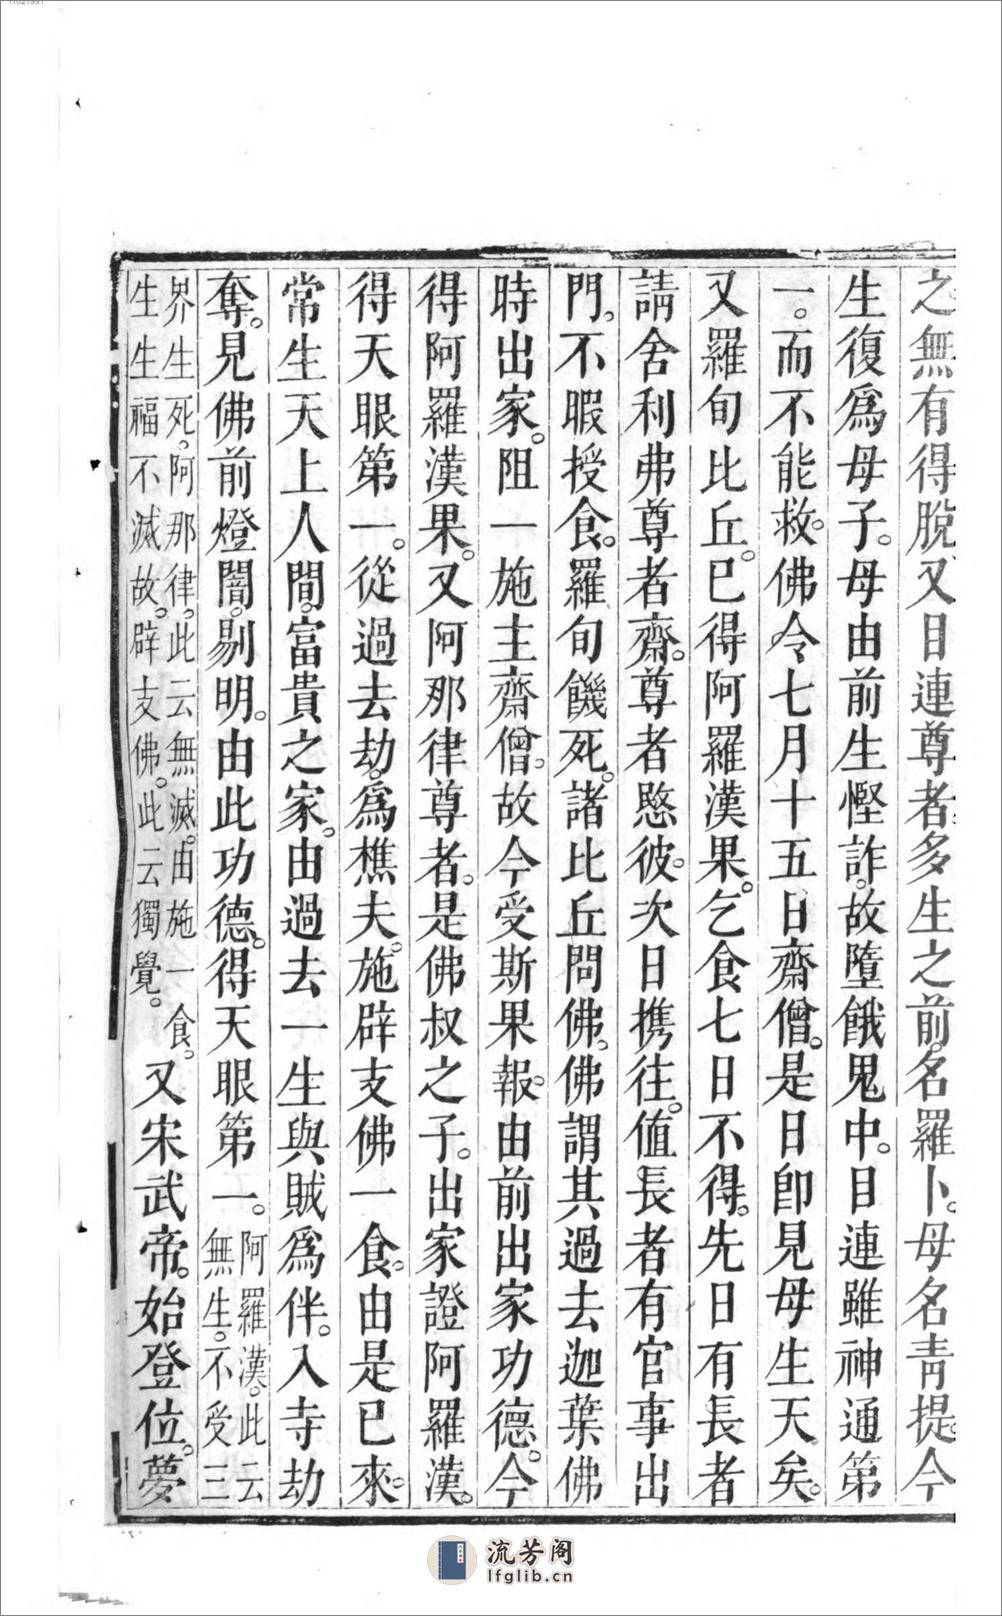 之無有得脫又目連尊者多生之前。名羅卜。母名青提。今
生復爲母子。母由前生慳詐。故墮餓鬼中。目連雖神通第
一。而不能救。佛令七月十五日齋僧。是日卽見母生天矣。
又羅旬比丘。已得阿羅漢果。乞食七日不得。先日有長者
請舍利弗尊者齋。尊者愍彼。次日携往。值長者有官事出
門。不暇授食。羅旬饑死。諸比丘問佛。佛謂其過去迦葉佛
時出家。阻一施主齋僧。故今受斯果報。由前出家功德。今
得阿羅漢果。又阿那律尊者。是佛叔之子。出家證阿羅漢。
得天眼第一。從過去劫。爲樵夫。施辟支佛一食。由是已來。
常生天上人間。富貴之家。由過去一生與賊爲伴。入寺劫
奪。見佛前燈闇。剔明。由此功德。得天眼第一。阿羅漢。此云
無生。不受三
界生死。阿那律。此云無滅。由施一食。
生生福不滅故。辟支佛。此云獨覺。又宋武帝。始登位。夢
流芳阁
lfglib.cn